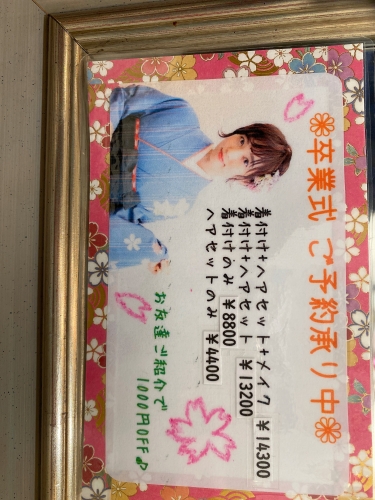 卒業式 ご予約承り中
着付け+ヘアセット+メイク ¥14300
着付け+ヘアセット ¥13200
着付けのみ ¥8800
ヘアセットのみ ¥4400
お友達ご紹介で
1000円OFF♪